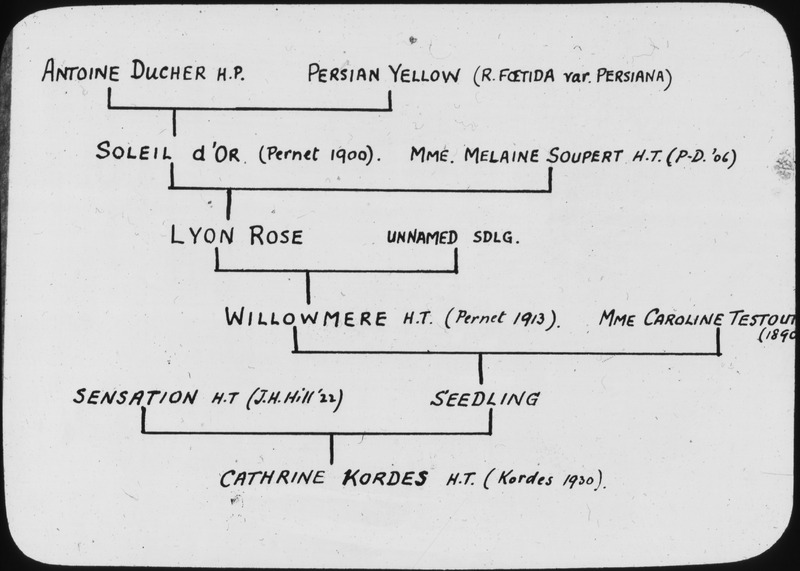 ANTOINE DUCHER H.P. PERSIAN YELLOW (R. FŒTIDA var. PERSIANA)
SOLEIL d'OR. (Pernet 1900). MME. MELAINE SOUPERT H.T. (P-D. '06)
LYON ROSE UNNAMED SDLG.
WILLOWMERE H.T. (Pernet 1913). MME CAROLINE TESTOUT
(1890
SENSATION H.T (J.H. Hill '22) SEEDLING
CATHRINE KORDES H.T. (Kordes 1930).